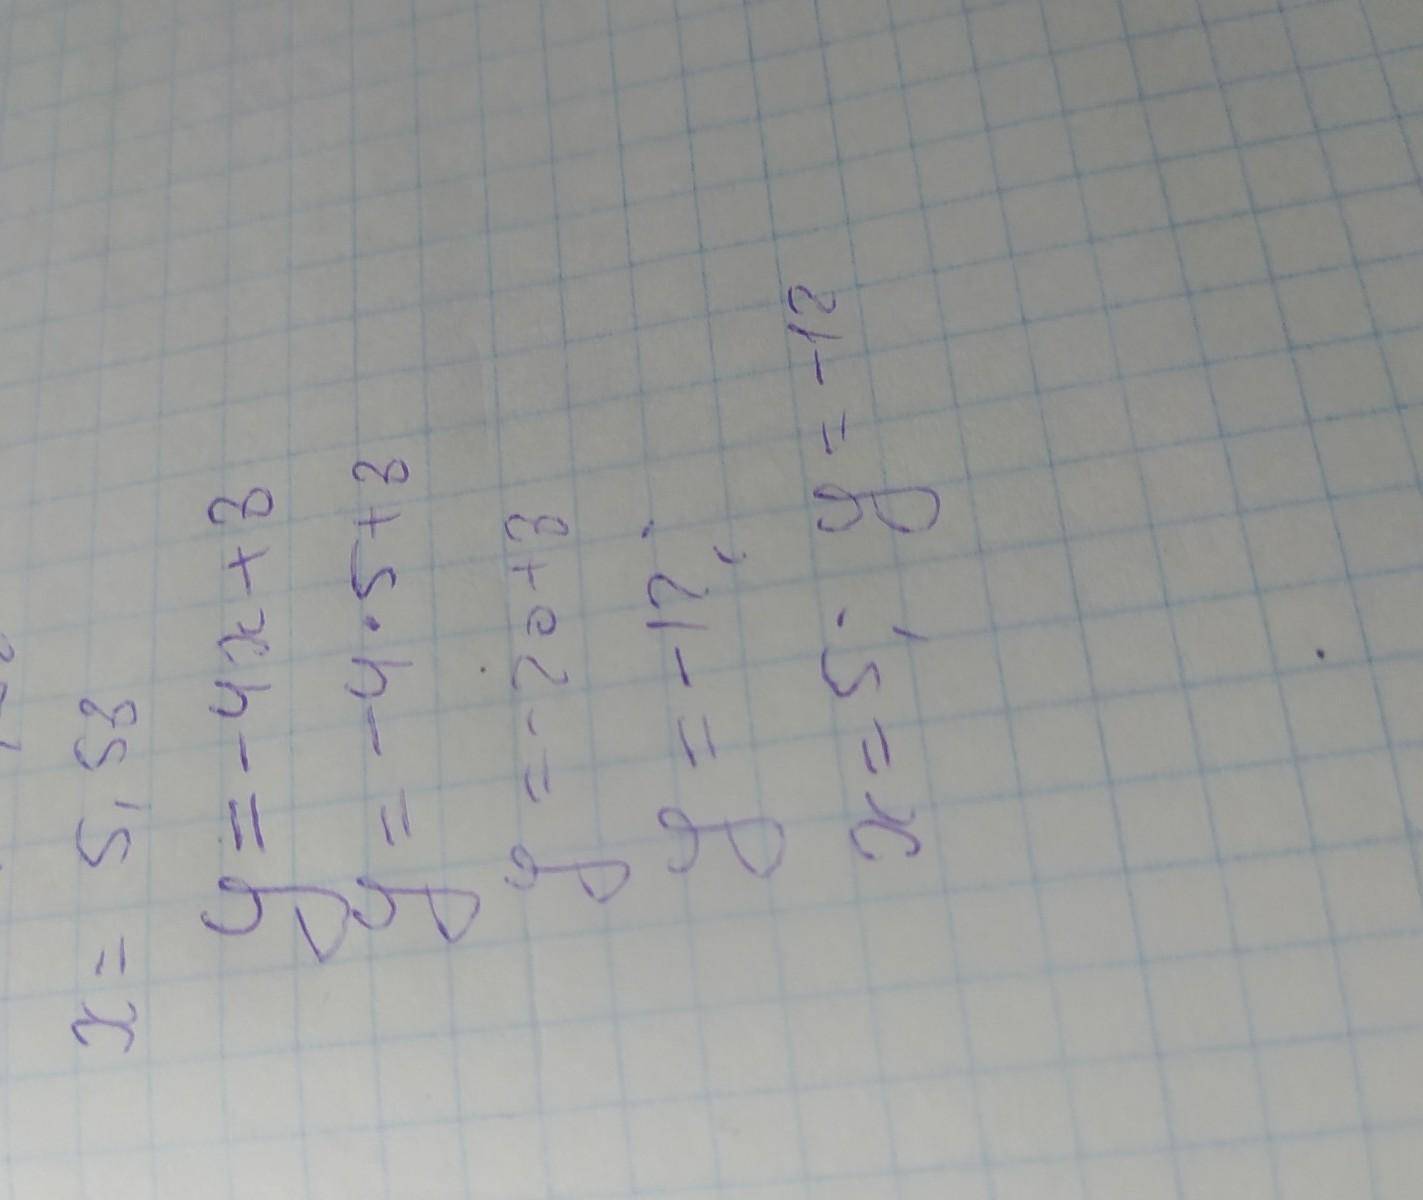 x = 5,58
y = -4x+8
y = -4·5+8
y = -20+8
y = -12;
x = 5; y = -12